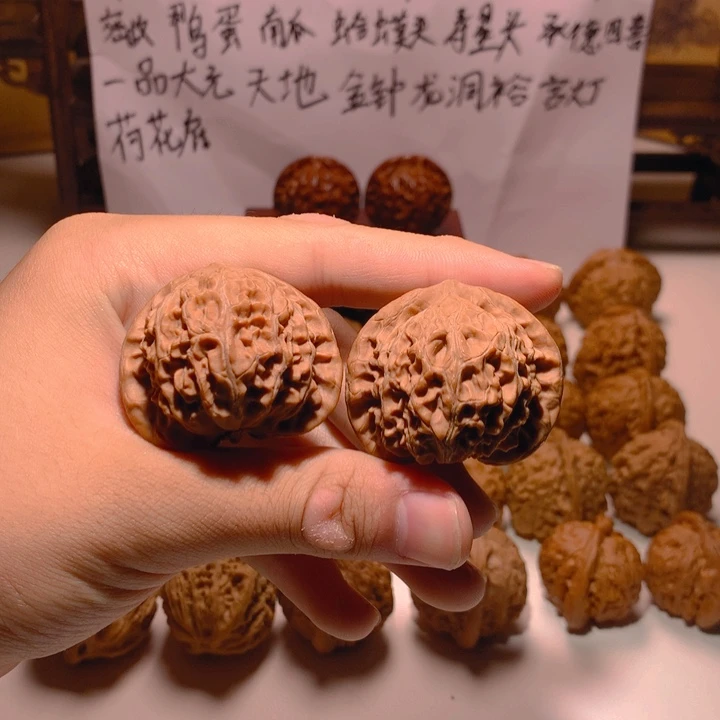 鸭蛋 南瓜 蛤蟆头 寿星头 承德四喜
一品大元 天地 金钟 龙洞裕 宫灯
荷花底